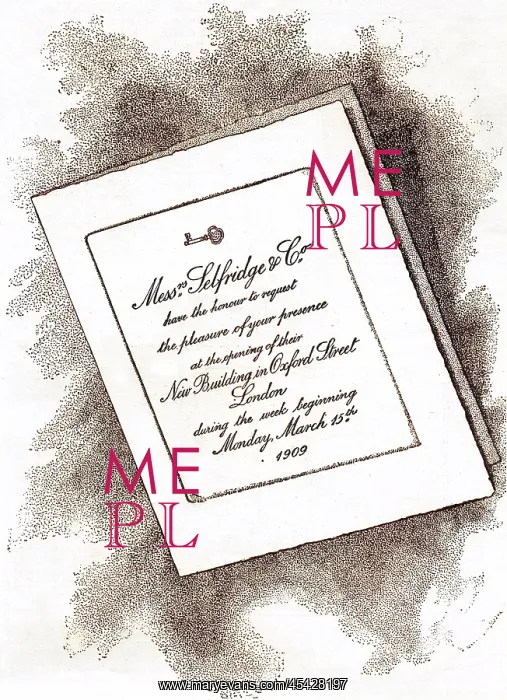 Messrs. Selfridge & Co.
have the honour to request
the pleasure of your presence
at the opening of their
New Building in Oxford Street
London
during the week beginning
Monday, March 15th
1909
ME
PL
ME
PL
www.maryevans.com/45428197